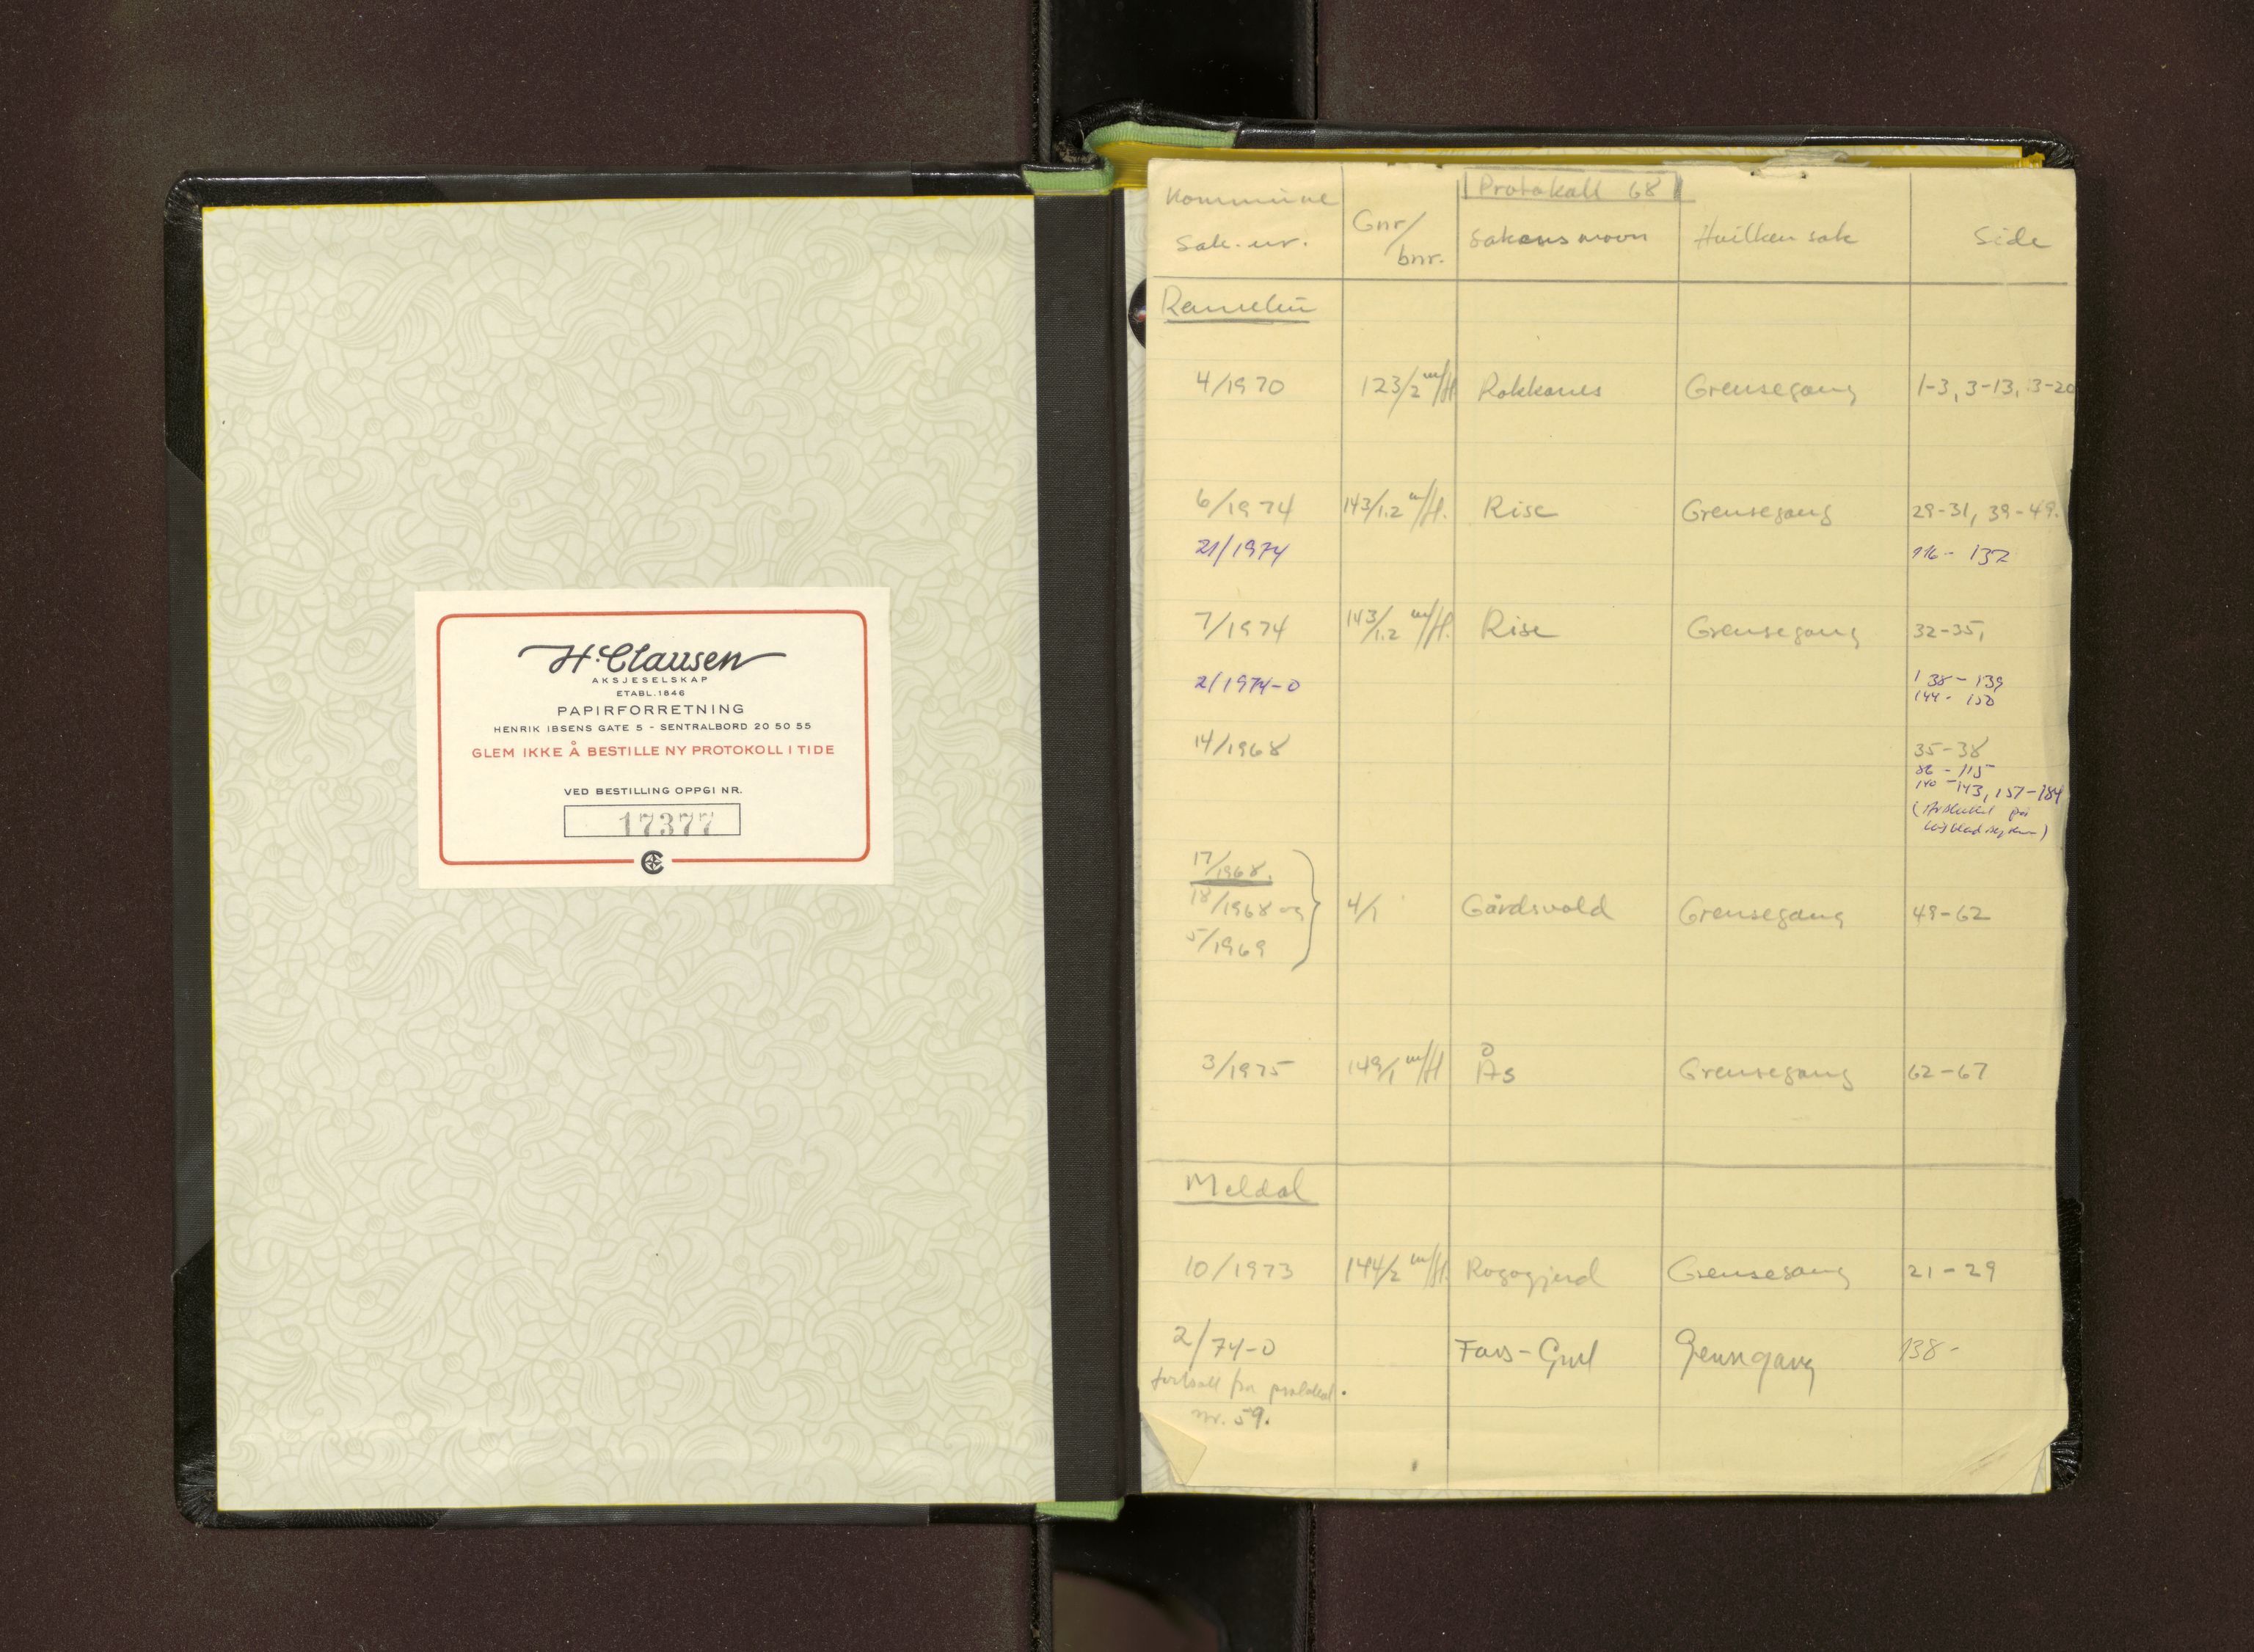 H. Clausen
AKSJESELSKAP
ETABL. 1846
PAPIRFORRETNING
HENRIK IBSENS GATE 5 - SENTRALBORD 20 50 55
GLEM IKKE Å BESTILLE NY PROTOKOLL I TIDE
VED BESTILLING OPPGI NR.
17377
Protokoll 68
Kommune Sak.nr. Gnr/bnr. Sakens navn Hvilken sak Side
4/1970 123/2 m/fl Rokkones Grensegang 1-3, 3-13, 3-20
6/1974 143/1.2 m/fl. Rise Grensegang 29-31, 39-49.
21/1974 116 - 137
7/1974 143/1.2 m/fl. Rise Grensegang 32-35,
2/1974-0 138 - 139
144 - 150
14/1968 35-38
86 - 115
140 - 143, 157-184
(Avsluttet på
løsbladsystem)
17/1968.
18/1968 og 4/1 Gårdsvold Grensegang 49-62
5/1969
3/1975 149/1 m/fl Ås Grensegang 62-67
Meldal
10/1973 144/2 m/fl. Grensegang 21-29
2/74-0 Grensegang 138-
fortsatt fra protokoll
nr. 59.